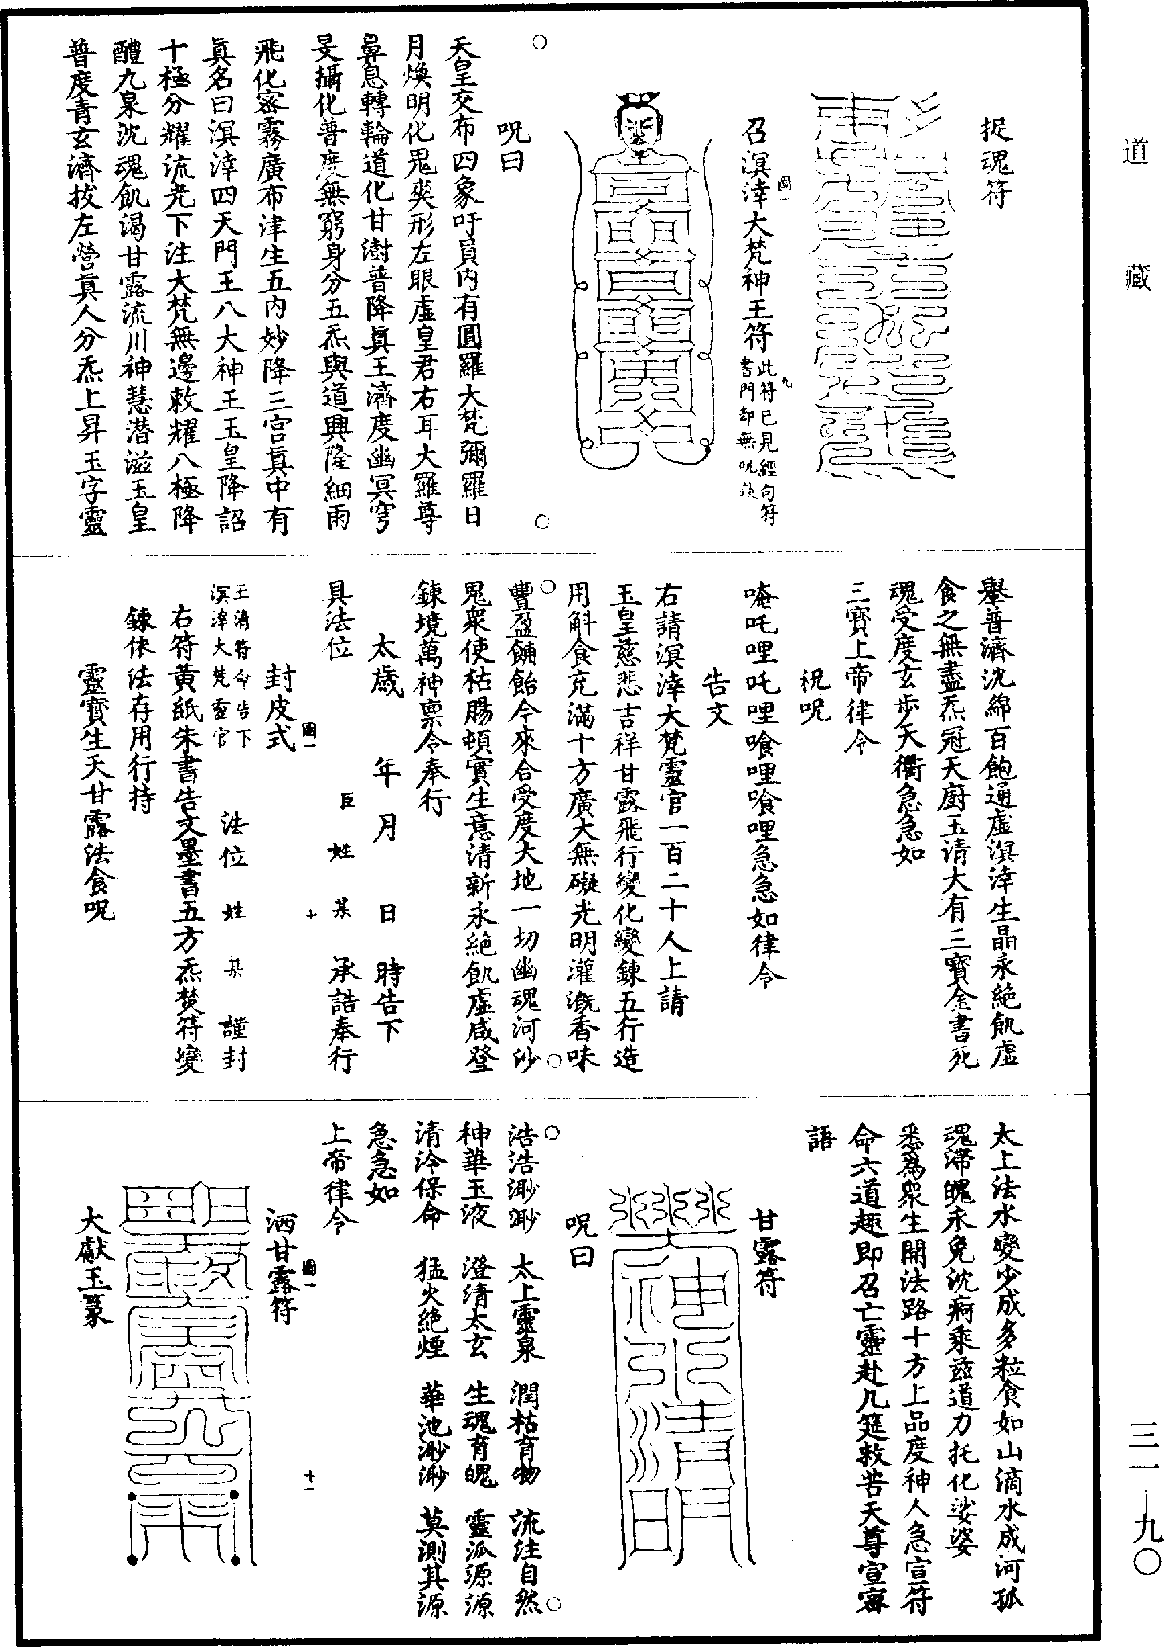 道藏
三一—九〇
捉魂符
召溟涬大梵神王符
此符已見經句符
書門却無呪
呪曰
天皇交布四象吁員内有圓羅大梵彌羅日
月煥明化鬼奕形左眼虛皇君右耳大羅尊
鼻息轉輪道化甘澍普降真王濟度幽冥穹
旻攝化普度無窮身分五炁與道興隆細雨
飛化密霧廣布津生五内妙降三宫真中有
真名曰溟涬四天門王八大神王玉皇降詔
十極分耀流光下注大梵無邊敕耀八極降
醴九泉沈魂飢渴甘露流川神慧潛滋玉皇
普度青玄濟拔左營真人分炁上昇玉字靈
舉普濟沈綿百飽通虛溟涬生晶永絕飢虛
食之無盡炁冠天廚玉清大有三寶金書死
魂受度玄步天衢急急如
三寶上帝律令
祝呪
唵吒哩吒哩喰哩喰哩急急如律令
告文
右請溟涬大梵靈官一百二十人上請
玉皇慈悲吉祥甘露飛行變化變鍊五行造
用斛食充滿十方廣大無礙光明灌溉香味
豐盈餔飴今來合受度大地一切幽魂河沙
鬼衆使枯腸頓實生意清新永絕飢虛咸登
鍊境萬神稟令奉行
太歲 年 月 日 時告下
具法位 臣 姓 某 承誥奉行
封皮式
圖一
十
玉清符命告下
溟涬大梵靈官 法位 姓 某 謹封
右符黃紙朱書告文墨書五方炁焚符變
鍊依法存用行持
靈寶生天甘露法食呪
太上法水變少成多粒食如山滴水成河孤
魂滯魄未免沈痾乘茲道力托化娑婆
悉為衆生開法路十方上品度神人急宣符
命六道趣即召亡靈赴几筵救苦天尊宣密
語
甘露符
呪曰
浩浩渺渺 太上靈泉 潤枯育物 流注自然
神華玉液 澄清太玄 生魂育魄 靈派源源
清泠保命 猛火絕煙 華池渺渺 莫測其源
急急如
上帝律令
洒甘露符
圖一
十一
大獻玉篆